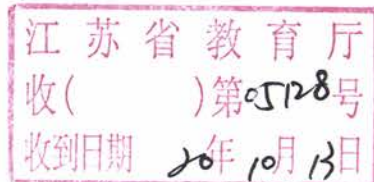 江苏省教育厅
收( )第05128号
收到日期 20年10月13日